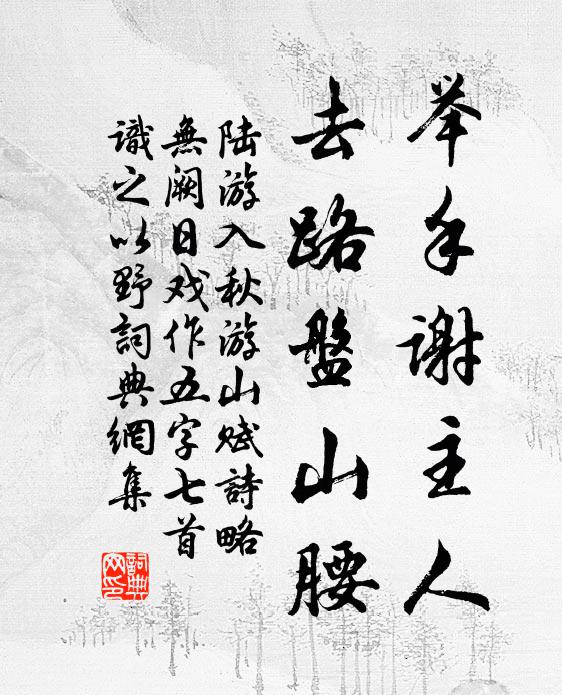 举手谢主人
去路盤山腰
陆游入秋游山赋詩略
無阙日戏作五字七首
識之以野詞典網集
詞典网印